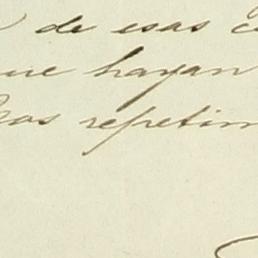 de esas
que hayan
Nos repetim